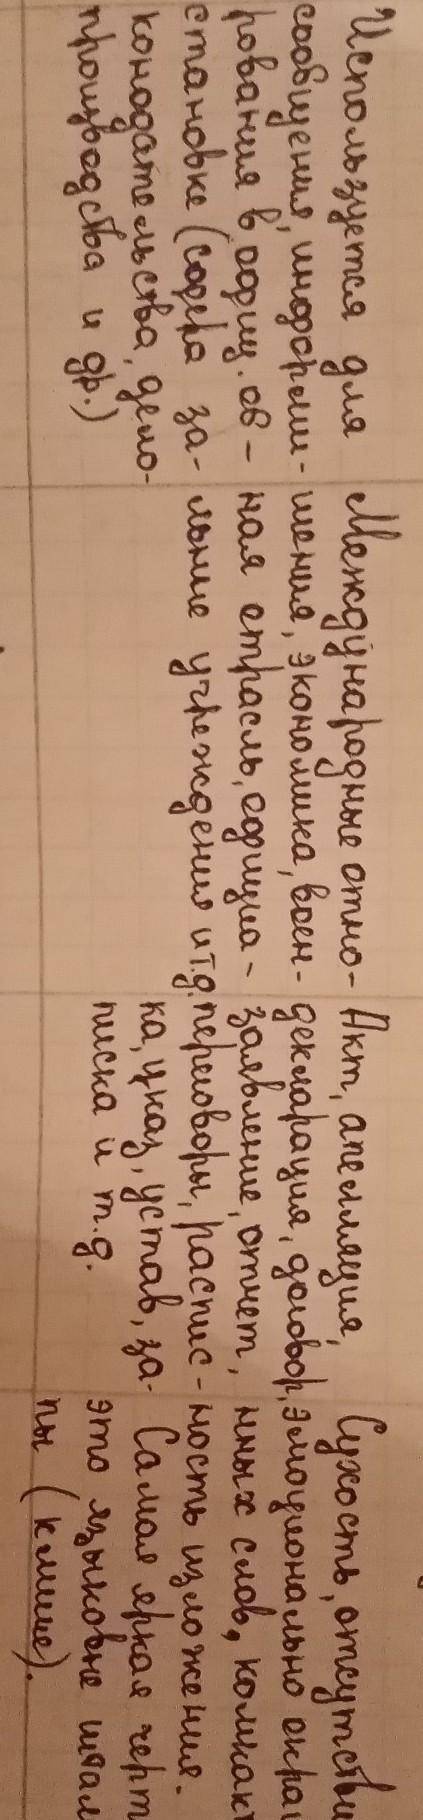 Используется для
сообщения, информи-
рования в офиц. об-
становке (сфера за-
конодательства, дело-
производства и др.)
Международные отно-
шения, экономика, воен-
ная отрасль, официа-
льные учреждения и т.д.
Акт, апелляция,
декларация, договор,
заявление, отчет,
переговоры, распис-
ка, указ, устав, за-
писка и т.д.
Сухость, отсутстви
эмоционально окра
нных слов, компакт
ность изложения.
Самая яркая черт
это языковые штам
пы (клише).